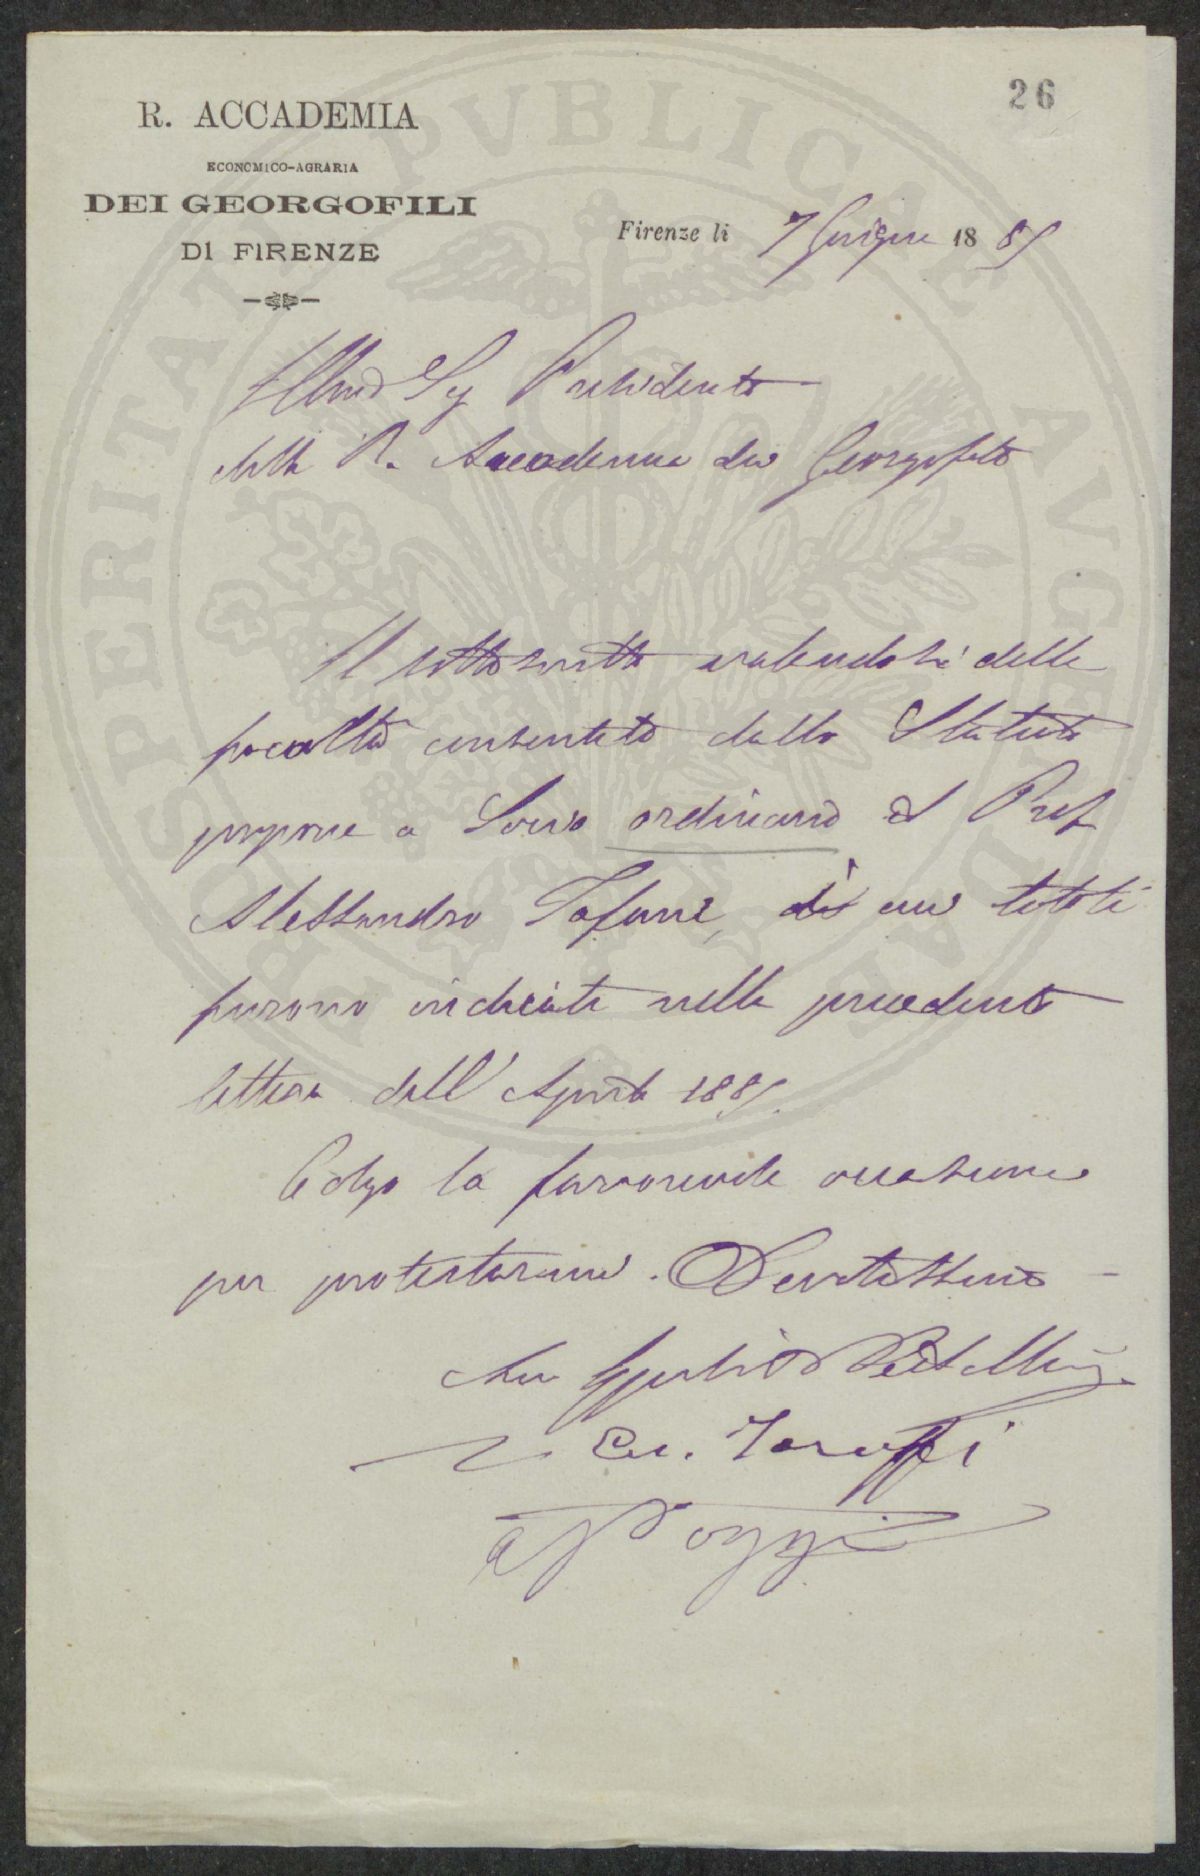 26
R. ACCADEMIA
ECONOMICO-AGRARIA
DEI GEORGOFILI
DI FIRENZE
Firenze li 7 Giugno 1885
Illmo Sig Presidente
della R. Accademia dei Georgofili
Il sottoscritto valendosi della
facoltà consentita dallo Statuto
propone a Socio ordinario il Prof
Alessandro Tafani, di cui i titoli
furono indicati nella precedente
lettera dell' Aprile 1885.
Colgo la favorevole occasione
per protestarmi. Devotissimo
Pellizzari
Taruffi
Poggi
PROSPERITATI PVBLICAE AVGENDAE